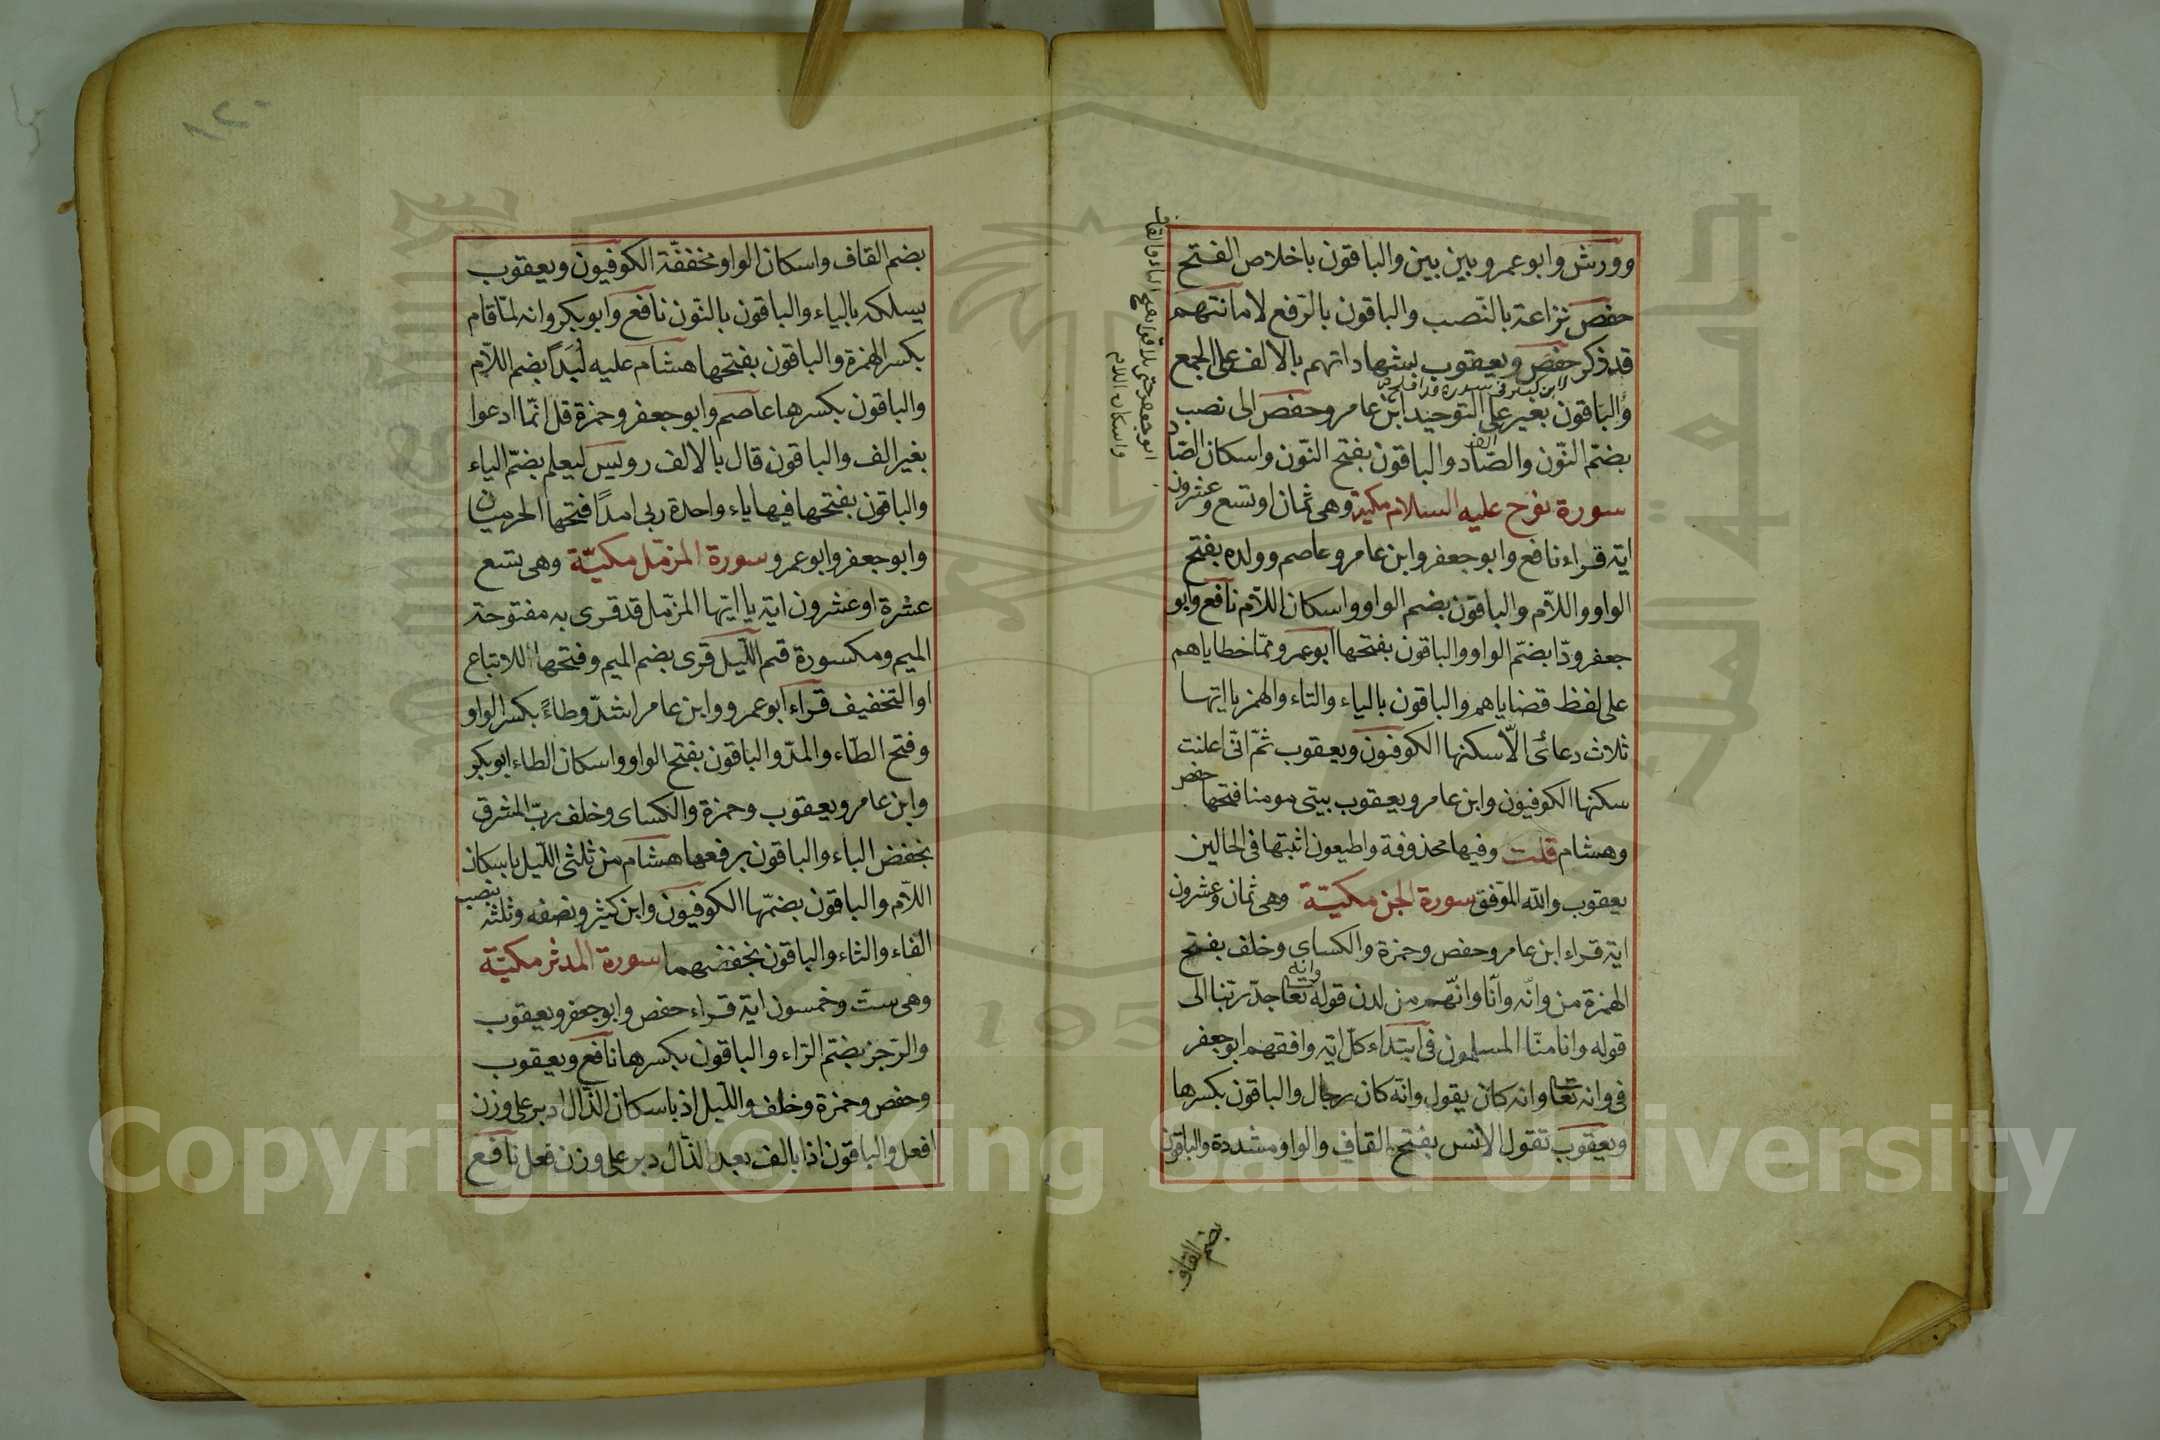 وورش وابو عمرو بين بين والباقون باخلاص الفتح
حفص نزاعة بالنصب والباقون بالرفع لاماناتهم
قد ذكر حفص ويعقوب بشهاداتهم بالالف على الجمع
والباقون بغير الف على التوحيد ابن عامر وحفص الى نصب
بضمّ النّون والصّاد والباقون بفتح النّون واسكان الصّاد
سورة نوح عليه السلام مكية وهى ثمان او تسع وعشرون
اية قراء نافع وابو جعفر وابن عامر وعاصم وولده بفتح
الواو واللاّم والباقون بضم الواو واسكان اللاّم نافع وابو
جعفر ودّا بضمّ الواو والباقون بفتحها ابو عمرو ممّا خطاياهم
على لفظ قضاياهم والباقون بالياء والتاء والهمز ياآتها
ثلاث دعائى الاّ سكنها الكوفيون ويعقوب ثمّ انّى اعلنت
سكنها الكوفيون وابن عامر ويعقوب بيتى مومنا فتحها حفص
وهشام قلت وفيها محذوفة واطيعون اثبتها فى الحالين
يعقوب والله الموّفق سورة الجن مكيّة وهى ثمان وعشرون
اية قراء ابن عامر وحفص وحمزة والكساى وخلف بفتح
الهمزة من وانّه وانّا وانّهم من لدن قوله وانه تعا جدّ ربّنا الى
قوله وانا منّا المسلمون فى ابتداء كلّ اية وافقهم ابو جعفر
فى وانه تعا وانه كان يقول وانّه كان رجال والباقون بكسرها
ويعقوب تقول الانس بفتح القاف والواو مشددة والباقون
بضم القاف
ابو جعفر حتى يلاقوا بفتح الياء والقاف
واسكان اللام
١٢٠
بضم القاف واسكان الواو مخففّة الكوفيون ويعقوب
يسلكه بالياء والباقون بالنّون نافع وابو بكر وانه لمّا قام
بكسر الهمزة والباقون بفتحها هشام عليه لُبَدًا بضم اللاّم
والباقون بكسرها عاصم وابو جعفر وحمزة قل انّما ادعوا
بغير الف والباقون قال بالالف رويس ليعلم بضمّ الياء
والباقون بفتحها فيها ياء واحدة ربى امدًا فتحها الحرميان
وابو جعفر وابو عمرو سورة المزمّل مكيّة وهى تسع
عشرة او عشرون اية يا ايّها المزمّل قد قرى به مفتوحة
الميم ومكسورة قم اللّيل قرى بضم الميم وفتحها للاتباع
او التخفيف قراء ابو عمرو وابن عامر اشدّ وطاءً بكسر الواو
وفتح الطّاء والمدّ والباقون بفتح الواو واسكان الطاء ابو بكر
وابن عامر ويعقوب وحمزة والكساى وخلف ربّ المشرق
بخفض الباء والباقون برفعها هشام من ثلثى اللّيل باسكان
اللاّم والباقون بضمّها الكوفيون وابن كثير ونصفه وثلثه بنصب
الفاء والثاء والباقون بخفضهما سورة المدثر مكيّة
وهى ستّ وخمسون اية قراء حفص وابو جعفر ويعقوب
والرّجز بضمّ الرّاء والباقون بكسرها نافع ويعقوب
وحفص وحمزة وخلف واللّيل اذ باسكان الذّال ادبر على وزن
افعل والباقون اذا بالف بعد الذّال دبر على وزن فعل نافع
Copyright © King Saud University
جامعة الملك
195